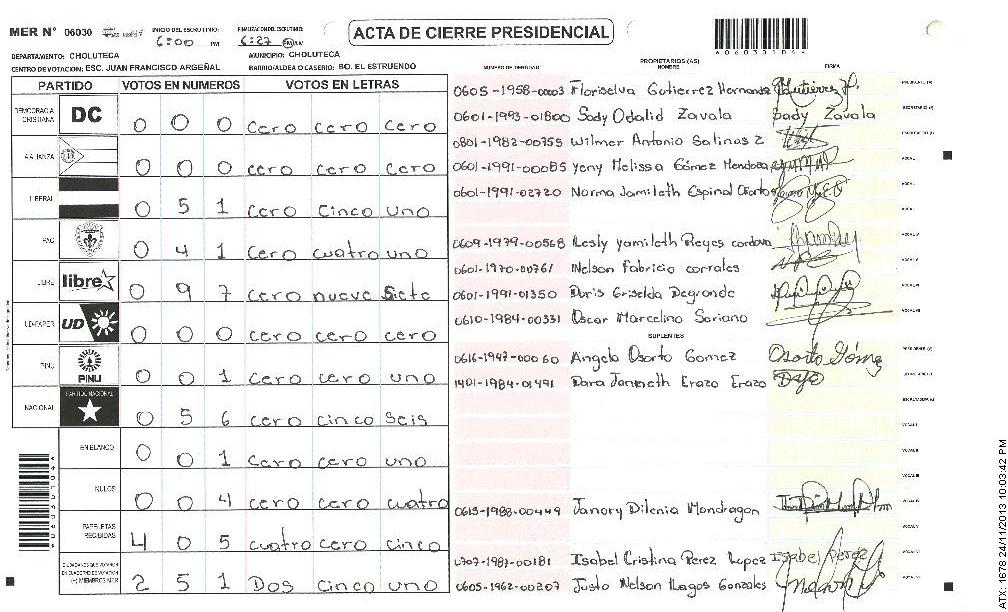 MER N° 06030
INICIO DEL ESCRUTINIO: 6:00 PM
FINALIZACION DEL ESCRUTINIO: 6:27 PM
ACTA DE CIERRE PRESIDENCIAL
DEPARTAMENTO: CHOLUTECA
MUNICIPIO: CHOLUTECA
CENTRO DE VOTACION: ESC. JUAN FRANCISCO ARGEÑAL
BARRIO/ALDEA O CASERIO: BO. EL ESTRUENDO
PARTIDO VOTOS EN NUMEROS VOTOS EN LETRAS
DEMOCRACIA CRISTIANA DC 0 0 0 cero cero cero
ALIANZA 0 0 0 cero cero cero
LIBERAL 0 5 1 cero cinco uno
PAC 0 4 1 cero cuatro uno
LIBRE libre 0 9 7 cero nueve Siete
UD-FAPER UD 0 0 0 cero cero cero
PINU PINU 0 0 1 cero cero uno
NACIONAL PARTIDO NACIONAL 0 5 6 cero cinco Seis
EN BLANCO 0 0 1 cero cero uno
NULOS 0 0 4 cero cero cuatro
PAPELETAS RECIBIDAS 4 0 5 cuatro cero cinco
CIUDADANOS QUE VOTARON 2 5 1 Dos cinco uno
NUMERO DE IDENTIDAD
PROPIETARIOS (AS)
NOMBRE
FIRMA
0605-1958-0003 Floriselva Gutierrez Hernandez
0601-1993-01800 Sady Odalid Zavala Sady Zavala
0801-1982-00755 Wilmer Antonio Salinas Z
0601-1991-00085 Yeny Melissa Gómez Mendoza
0601-1991-02720 Norma Jamileth Espinal Osorto
0609-1979-00568 Lesly Yamileth Reyes cordova
0601-1970-00761 Nelson Fabricio corrales
0601-1991-01350 Doris Griselda Degrande
0610-1984-00331 Oscar Marcelino Soriano
SUPLENTES
0616-1947-00060 Angela Osorto Gomez Osorto Gómez
1401-1984-01491 Dora Janneth Erazo Erazo
0615-1988-00449 Janory Dilenia Mondragon
0707-1987-00181 Isabel Cristina Perez Lopez Isabel perez
0605-1962-00207 Justo Nelson Lagos Gonzales
ATX 1678 24/11/2013 10:03:42 PM